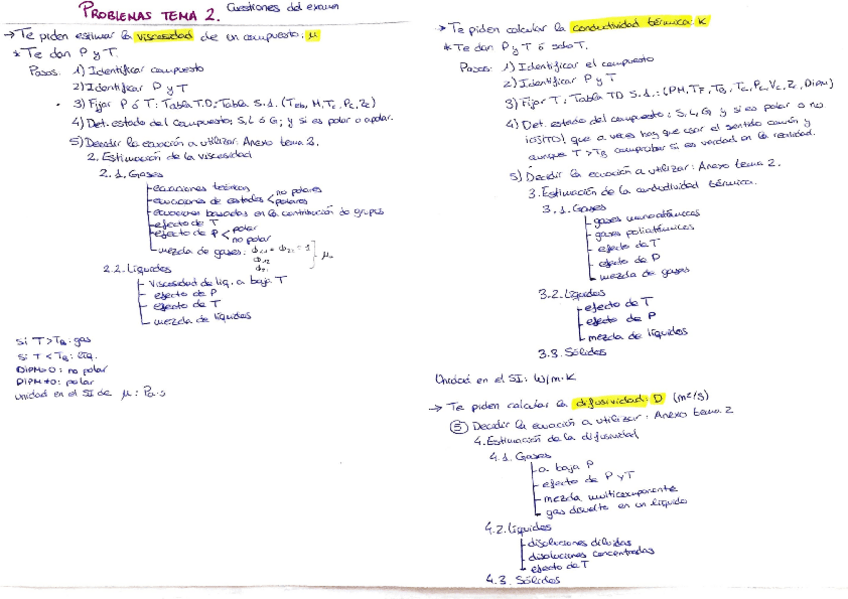 PROBLEMAS TEMA 2. Cuestiones del examen
→ Te piden estimar la viscosidad de un compuesto: μ
* Te dan P y T.
Pasos: 1) Identificar compuesto
2) Identificar P y T
3) Fijar P ó T: Tabla T.D: Tabla S.d. (Teb, M, Tc, Pc, Zc)
4) Det. estado del compuesto; S, L ó G; y si es polar o apolar.
5) Decidir la ecuación a utilizar. Anexo tema 2.
2. Estimación de la viscosidad
2.1. Gases
ecuaciones teóricas
ecuaciones de estados < no polares
polares
ecuaciones basadas en la contribución de grupos
efecto de T
efecto de P < polar
no polar
mezcla de gases:
2.2. Líquidos
Viscosidad de liq. a baja T
efecto de P
efecto de T
mezcla de líquidos
Si T > TB: gas
Si T < TB: liq.
DiPM=0: no polar
DiPM≠0: polar
Unidad en el SI de μ: Pa·s
→ Te piden calcular la conductividad térmica: K
* Te dan P y T ó solo T.
Pasos: 1) Identificar el compuesto
2) Identificar P y T
3) Fijar T: Tabla TD S.d.: (PM, TF, TB, Tc, Pc, Vc, Z, DiPM)
4) Det. estado del compuesto; S, L, G y si es polar o no.
¡OJITO! que a veces hay que usar el sentido común y
aunque T > TB comprobar si es verdad en la realidad.
5) Decidir la ecuación a utilizar: Anexo tema 2.
3. Estimación de la conductividad térmica.
3.1. Gases
gases monoatómicos
gases poliatómicos
efecto de T
efecto de P
mezcla de gases
3.2. Líquidos
efecto de T
efecto de P
mezcla de líquidos
3.3. Sólidos
Unidad en el SI: W/m·K
→ Te piden calcular la difusividad: D (m²/s)
⑤ Decidir la ecuación a utilizar: Anexo tema 2
4. Estimación de la difusividad
4.1. Gases
a baja P
efecto de P y T
mezcla multicomponente
gas disuelto en un líquido
4.2. Líquidos
disoluciones diluidas
disoluciones concentradas
efecto de T
4.3. Sólidos